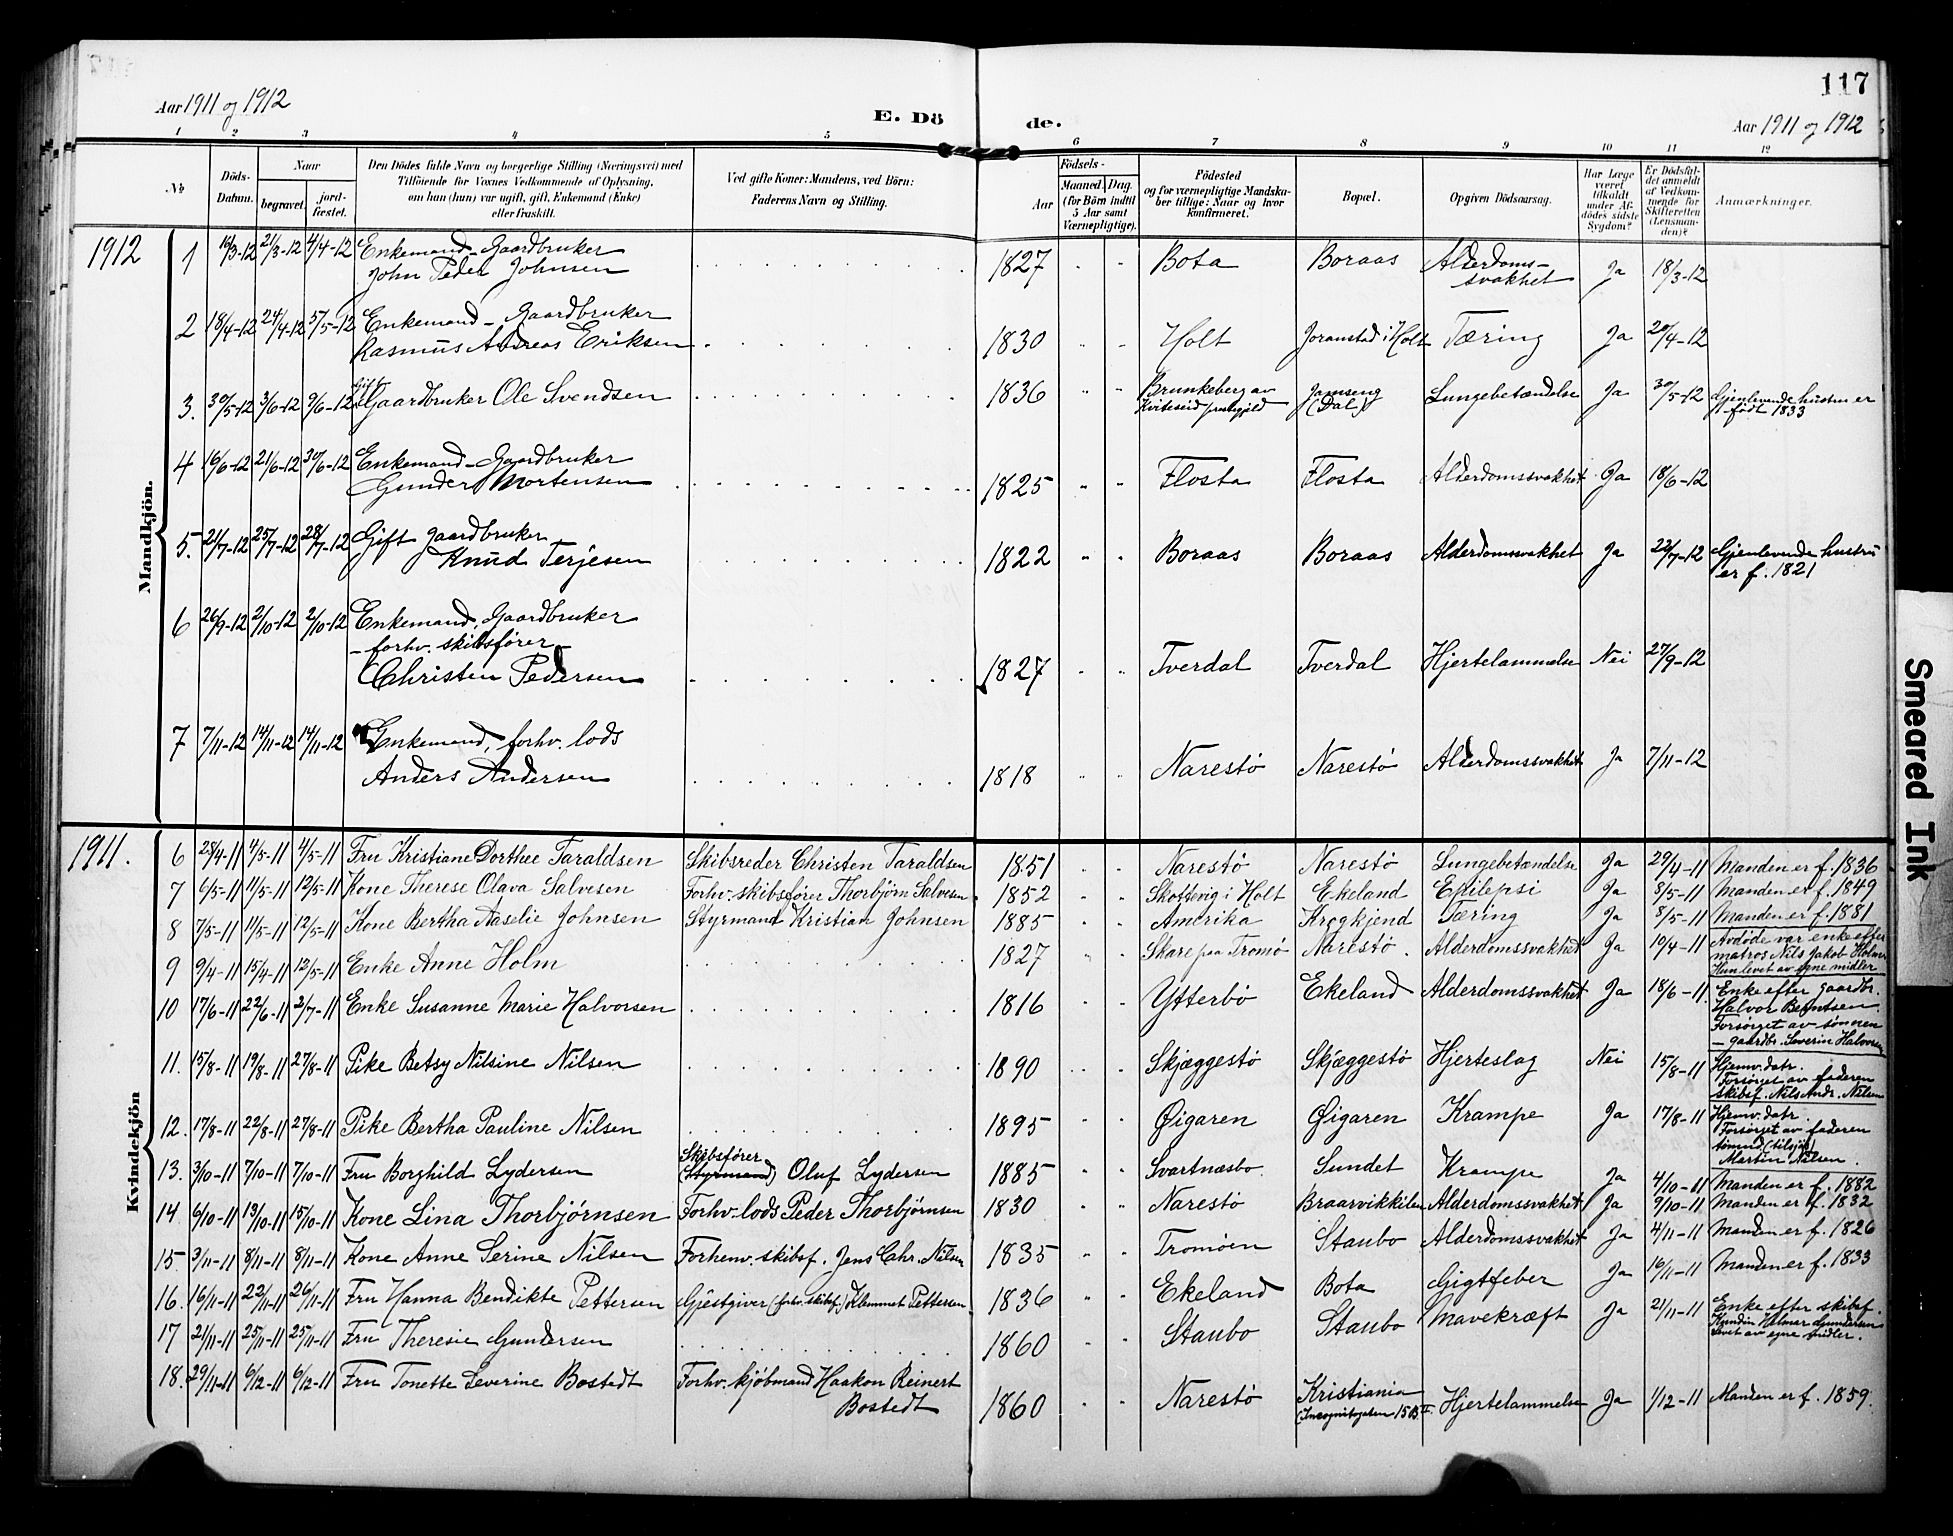 117
Aar 1911 og 1912
E. Dö de.
Aar 1911 og 1912
1 2 3 4 5 6 7 8 9 10 11 12
No
Döds-Datum.
Naar
begravet.
jord-fæstet.
Den Dödes fulde Navn og borgerlige Stilling (Næringsvei) med
Tilföiende for Voxnes Vedkommende af Oplysning,
om han (hun) var ugift, gift, Enkemand (Enke)
eller fraskilt.
Ved gifte Koner: Mandens, ved Börn:
Faderens Navn og Stilling.
Födsels-
Aar
Maaned. Dag.
(for Börn indtil
5 Aar samt
Værnepligtige).
Födested
og for værnepligtige Mandska-
ber tillige: Naar og hvor
konfirmeret.
Bopæl.
Opgiven Dödsaarsag.
Har Læge
været
tilkaldt
under Af-
dödes sidste
Sygdom?
Er Dödsfal-
det anmeldt
af Vedkom-
mende for
Skifteretten
(Lensman-
den)?
Anmærkninger.
Mandkjön.
1912 1 16/3-12 21/3-12 4/4-12 Enkemand - Gaardbruker
John Peder Johnsen 1827 Bota Boraas Alderdoms-
svakhet Ja 18/3-12
2 18/4-12 24/4-12 5/5-12 Enkemand - Gaardbruker
Rasmus Andreas Eriksen 1830 Holt Joranstad i Holt Tæring Ja 20/4-12
3. 30/5-12 3/6-12 9/6-12 Gift
Gaardbruker Ole Svendsen 1836 Brunkeberg av
Kviteseid Jamseng
(Dal) Lungebetændelse Ja 30/5-12 Gjenlevende hustru er
født 1833
4 16/6-12 21/6-12 30/6-12 Enkemand - Gaardbruker
Gunder Mortensen 1825 Flosta Flosta Alderdomssvakhet Ja 18/6-12
5. 21/7-12 25/7-12 28/7-12 Gift gaardbruker
Knud Terjesen 1822 Boraas Boraas Alderdomssvakhet Ja 22/7-12 Gjenlevende hustru
er f. 1821
6 26/9-12 2/10-12 2/10-12 Enkemand, Gaardbruker
- forhv. skibsfører -
Christen Pedersen 1827 Tverdal Tverdal Hjertelammelse Nei 27/9-12
7 7/11-12 14/11-12 14/11-12 Enkemand, forhv. lods
Anders Andersen 1818 Narestö Narestö Alderdomssvakhet Ja 7/11-12
Kvindekjön
1911. 6 28/4-11 4/5-11 4/5-11 Fru Kristiane Dorthee Taraldsen Skibsreder Christen Taraldsen 1851 Narestö Narestö Lungebetændelse Ja 29/4-11 Manden er f. 1836
7 6/5-11 11/5-11 12/5-11 Kone Therese Olava Salvesen Forhv. skibsfører Thorbjörn Salvesen 1852 Skottevig i Holt Ekeland Epilepsi Ja 8/5-11 Manden er f. 1849
8 7/5-11 11/5-11 12/5-11 Kone Bertha Aaselie Johnsen Styrmand Kristian Johnsen 1885 Amerika Krogkjend Tæring Ja 8/5-11 Manden er f. 1881
9 9/4-11 15/4-11 12/5-11 Enke Anne Holm 1827 Skare paa Tromö Narestö. Alderdomssvakhet Ja 10/4-11 Avdöde var enke efter
matros Nils Jakob Holm.
Hun levet av egne midler
10 17/6-11 22/6-11 2/7-11 Enke Susanne Marie Halvorsen 1816 Ytterbö Ekeland Alderdomssvakhet Ja 18/6-11 Enke efter gaardbr.
Halvor Berntsen.
Forsørget av sønnen
- gaardbr. Severin Halvorsen
11. 15/8-11 19/8-11 27/8-11 Pike Betsy Nilsine Nilsen 1890 Skjæggestö Skjæggestö Hjerteslag Nei 15/8-11 Hjemv. datr.
Forsørget av faderen
skibsf. Nils Andr. Nilsen
12. 17/8-11 22/8-11 27/8-11 Pike Bertha Pauline Nilsen 1895 Øigaren Øigaren Krampe Ja 17/8-11 Hjemv. datr.
Forsørget av faderen
tømmd. (tilsjøs)
Martin Nilsen.
13. 3/10-11 7/10-11 7/10-11 Fru Borghild Lydersen Skibsfører
(Styrmand) Oluf Lydersen 1885 Svartnæsbo Sundet Krampe Ja 4/10-11 Manden er f. 1882
14 6/10-11 13/10-11 15/10-11 Kone Lina Thorbjørnsen Forhv. lods Peder Thorbjørnsen 1830 Narestö Braarvikkilen Alderdomssvakhet Ja 9/10-11 Manden er f. 1832
15 3/11-11 8/11-11 8/11-11 Kone Anne Serine Nilsen Forhenv. skibsf. Jens Chr. Nilsen 1835 Tromöen Staubo Alderdomssvakhet Ja 4/11-11 Manden er f. 1826
16. 16/11-11 22/11-11 26/11-11 Fru Hanna Bendikte Pettersen Gjestgiver (forhv. skibsf.) Klemmet Pettersen 1836 Ekeland Bota Gigtfeber Ja 16/11-11 Manden er f. 1833
17 21/11-11 25/11-11 25/11-11 Fru Theresie Gundersen 1860 Staubo Staubo Mavekræft Ja 21/11-11 Enke efter skibsf.
Helmer Gundersen
levet av egne midler.
18. 29/11-11 6/12-11 6/12-11 Fru Tonette Severine Bostedt Forhv. kjöbmand Haakon Reinert
Bostedt 1860 Narestö Kristiania
(Incognitogaten 15 B II Hjertelammelse Ja 1/12-11 Manden er f. 1859.
Smeared Ink